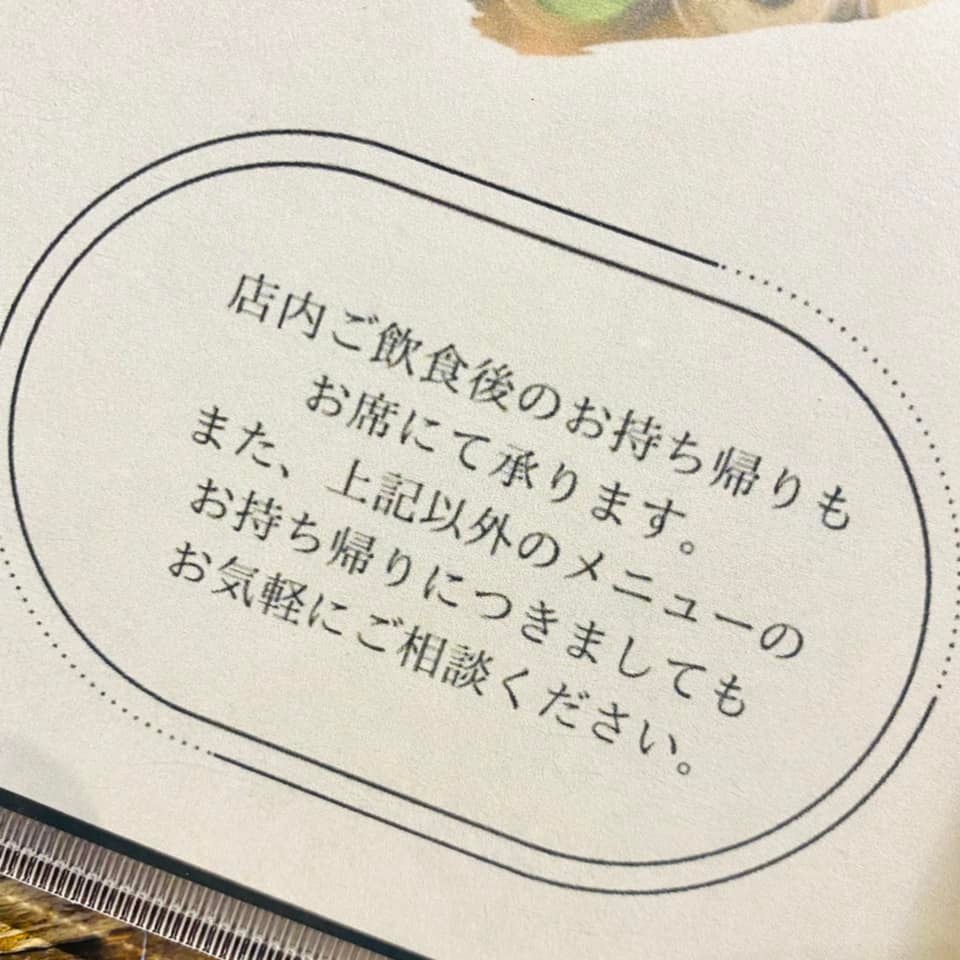 店内ご飲食後のお持ち帰りも
お席にて承ります。
また、上記以外のメニューの
お持ち帰りにつきましても
お気軽にご相談ください。